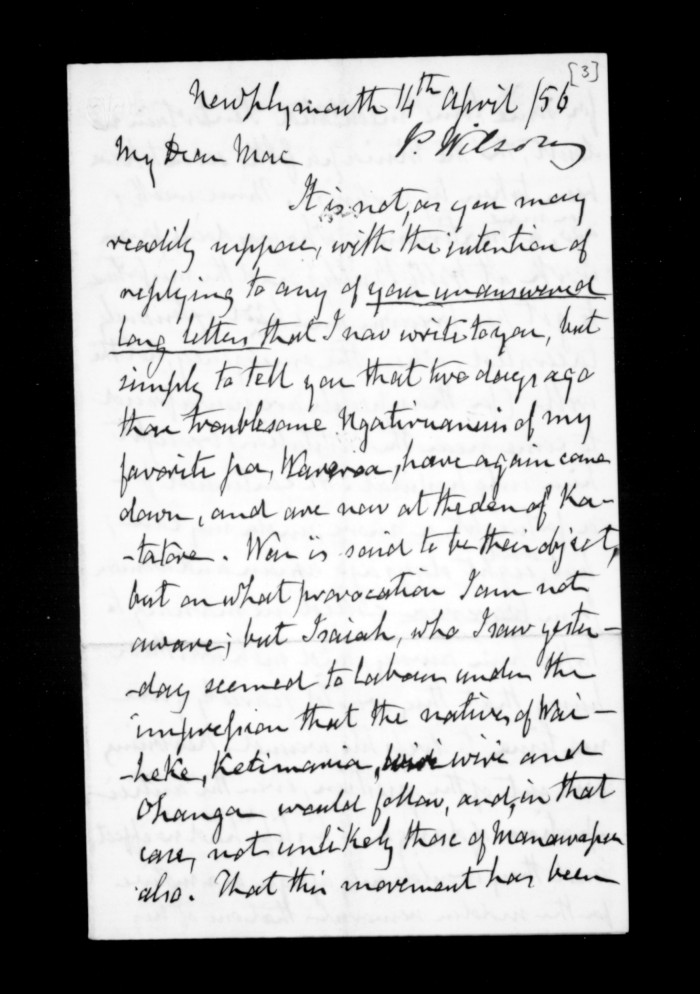 [3]
New Plymouth 14th April /56
P. Wilson
My Dear Mac
It is not, as you may
readily suppose, with the intention of
replying to any of your unanswered
long letters that I now write to you, but
simply to tell you that two days ago
those troublesome Ngatiruanuis of my
favorite pa, Warеroa, have again come
down, and are now at the den of Ka-
-tatore. War is said to be their object,
but on what provocation I am not
aware; but Isaiah, who I saw yester-
-day seemed to labour under the
impression that the natives of Wai-
-heke, Ketimaria, wiwi and
Ohanga would follow, and, in that
case, not unlikely those of Manawapou
also. That this movement has been